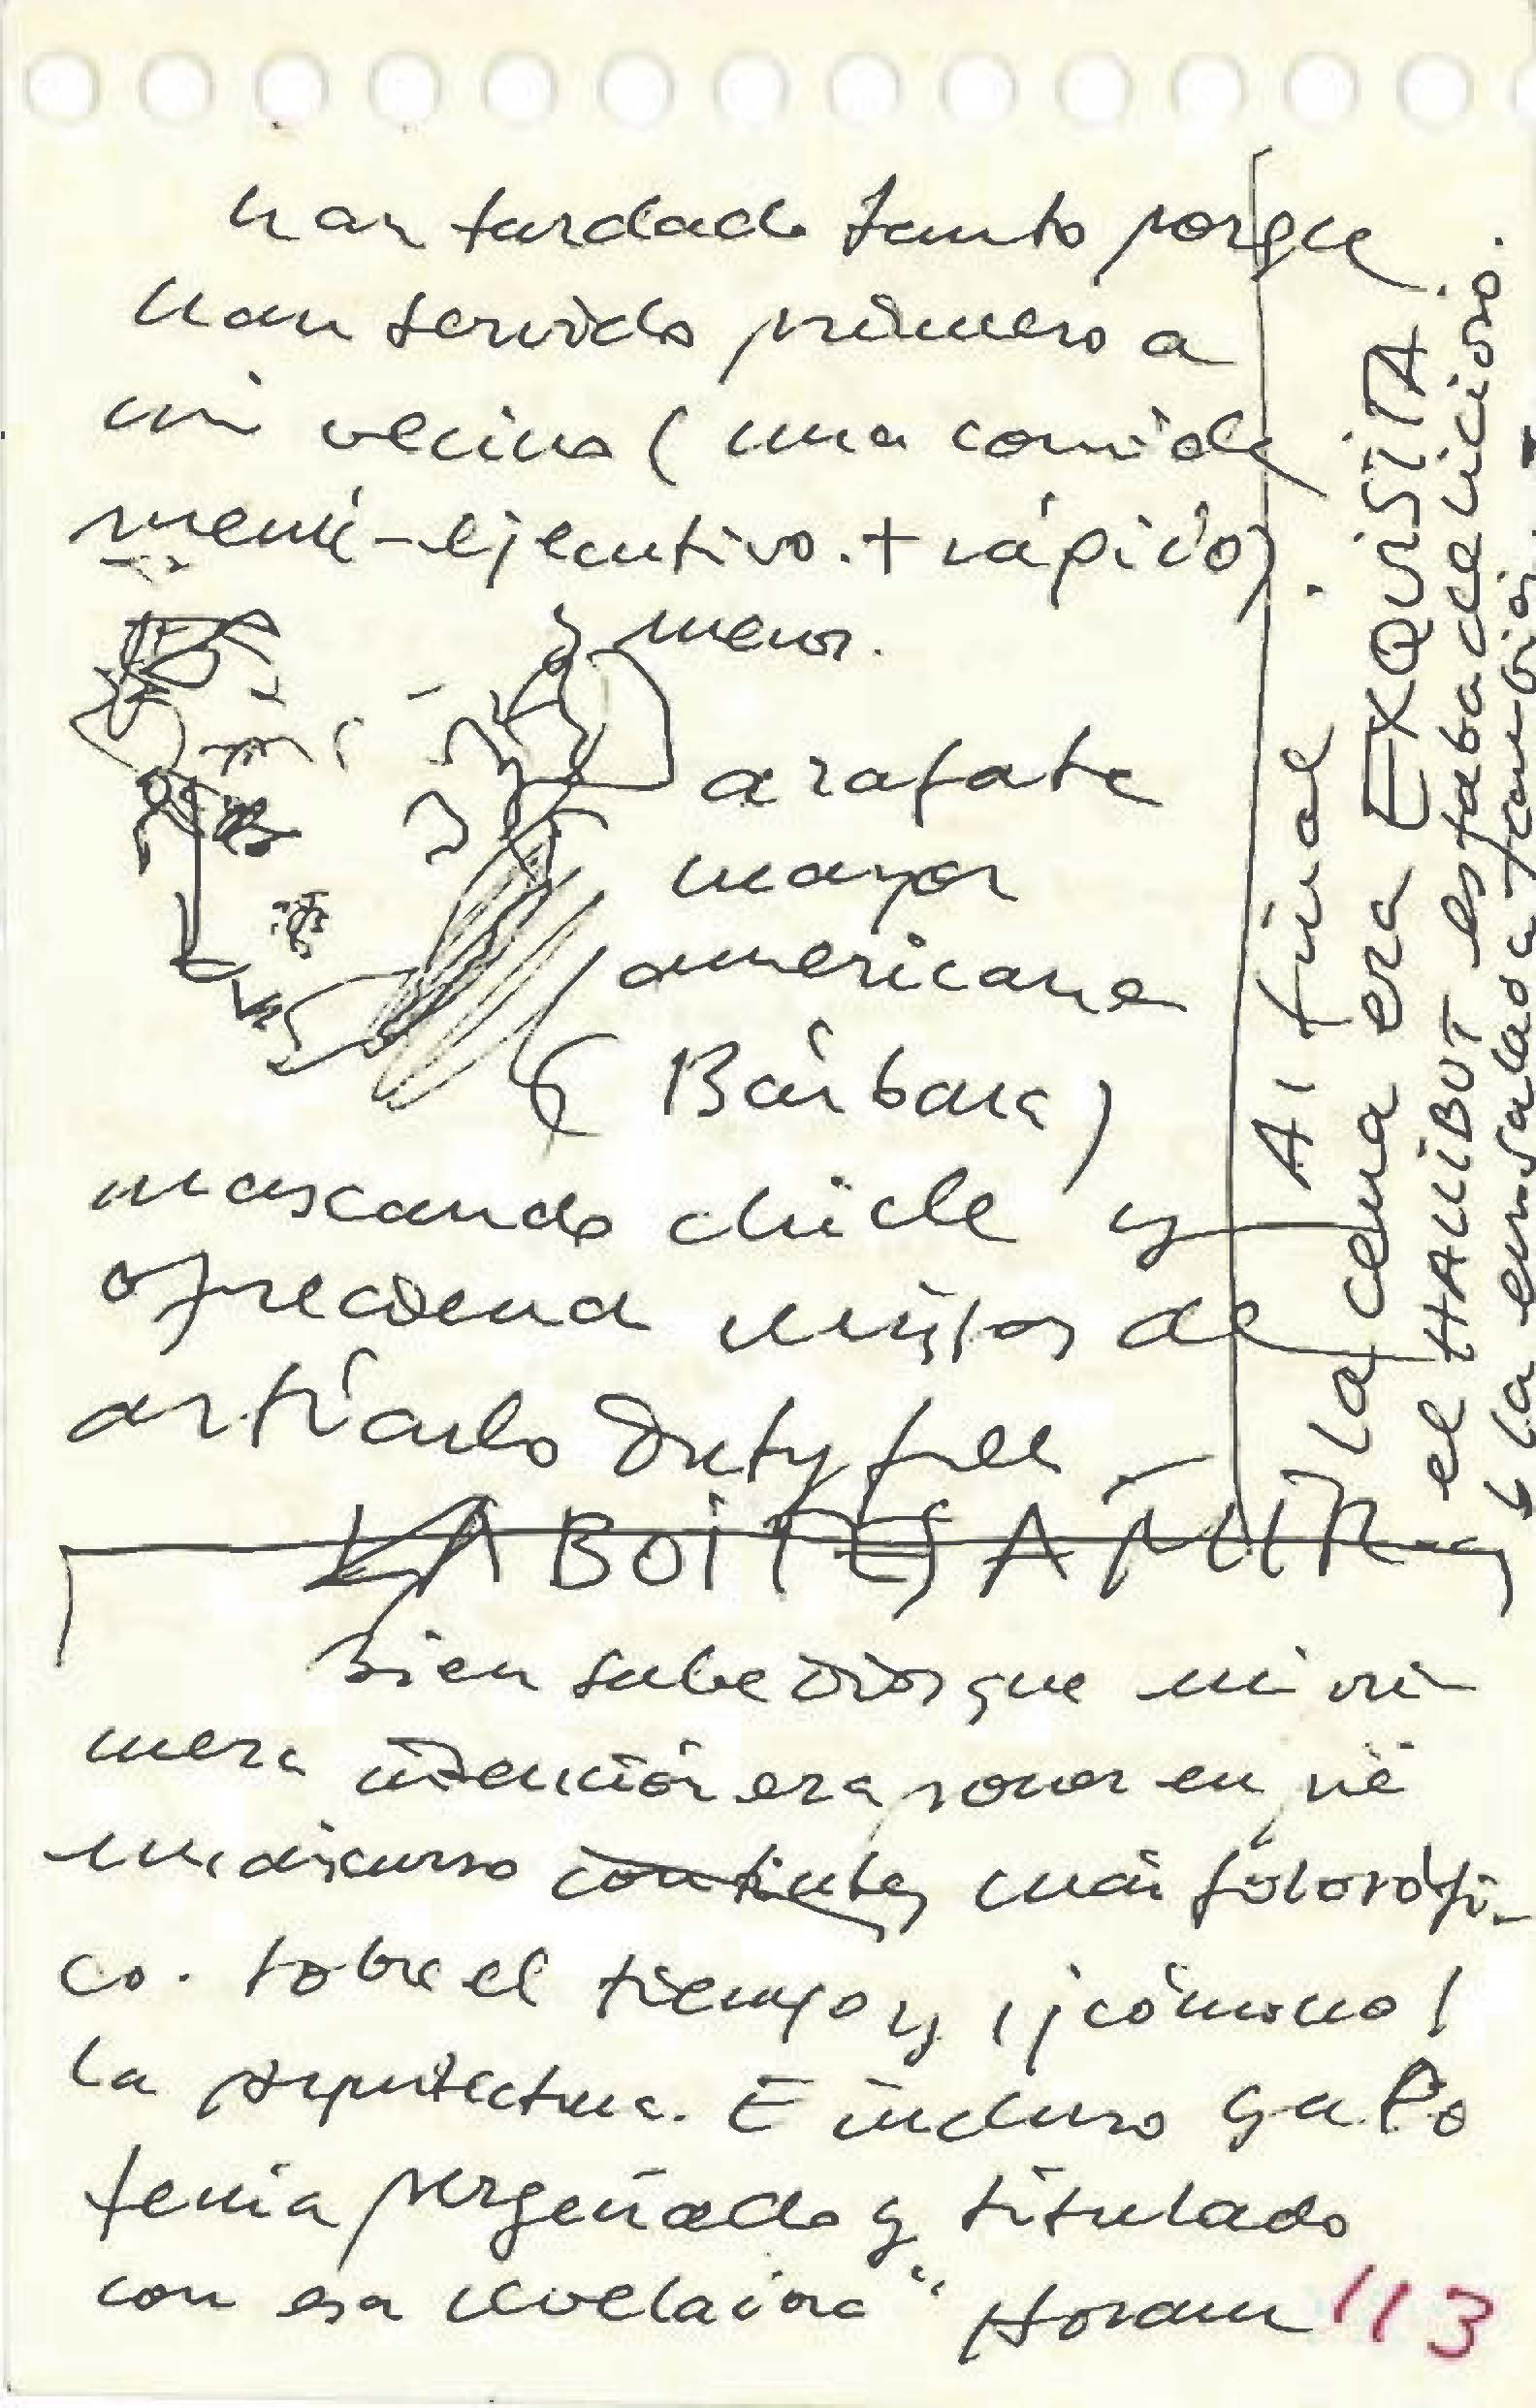 han tardado tanto porque
han servido primero a
mi vecino (una comida
menú-ejecutivo. + rápido).
menor.
azafata
mayor
americana
(Bárbara)
mascando chicle y
ofreciendo listas de
artículo Duty free
LA BOITE A MIR
Bien sabe Dios que mi pri-
mera intención era poner en pie
un discurso más filosófi-
co. sobre el tiempo y ¡¡cómo no!
la arquitectura. E incluso ya lo
tenía pergeñado y titulado
con esa "Horam
113
Al final
la cena era EXQUISITA.
el HALIBUT estaba delicioso.
y la ensalada también.